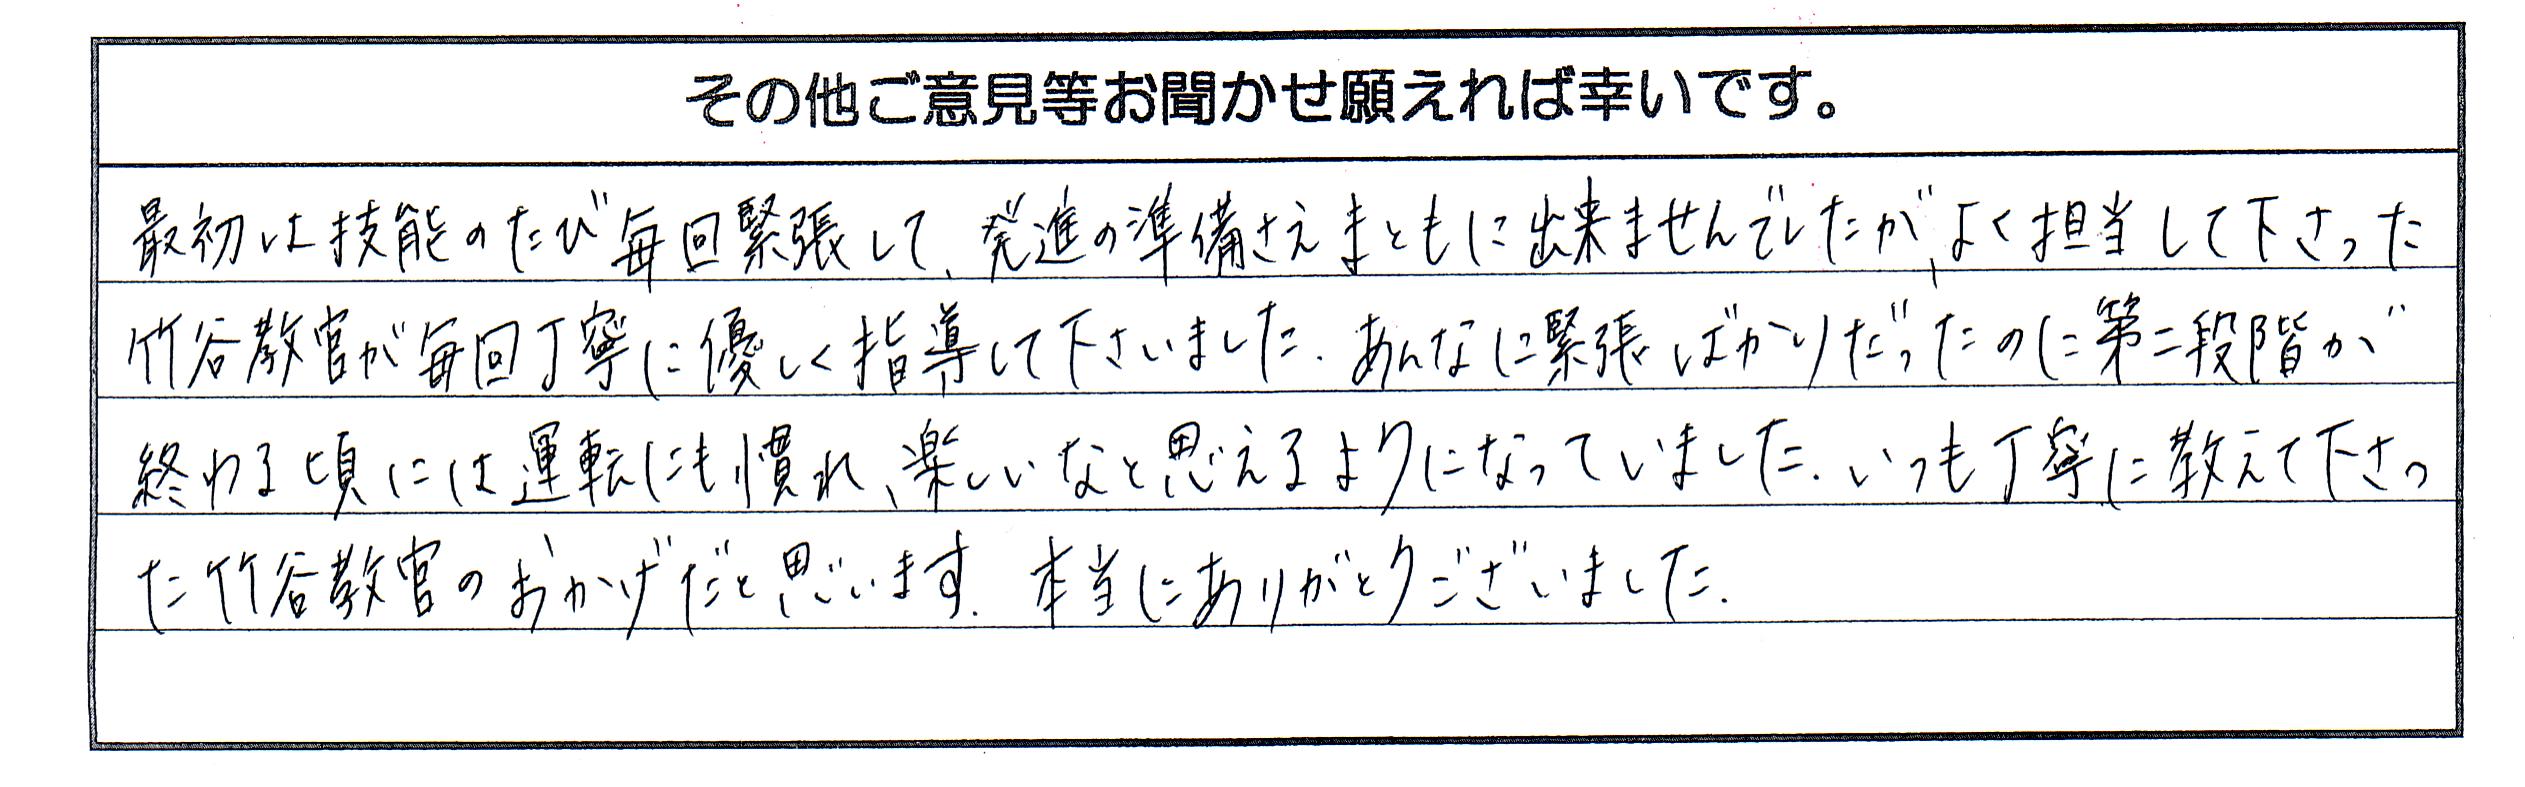 その他ご意見等お聞かせ願えれば幸いです。
最初は技能のたび毎回緊張して、発進の準備さえまともに出来ませんでしたが、よく担当して下さった
竹谷教官が毎回丁寧に優しく指導して下さいました。あんなに緊張ばかりだったのに第二段階が
終わる頃には運転にも慣れ、楽しいなと思えるようになっていました。いつも丁寧に教えて下さっ
た竹谷教官のおかげだと思います。本当にありがとうございました。